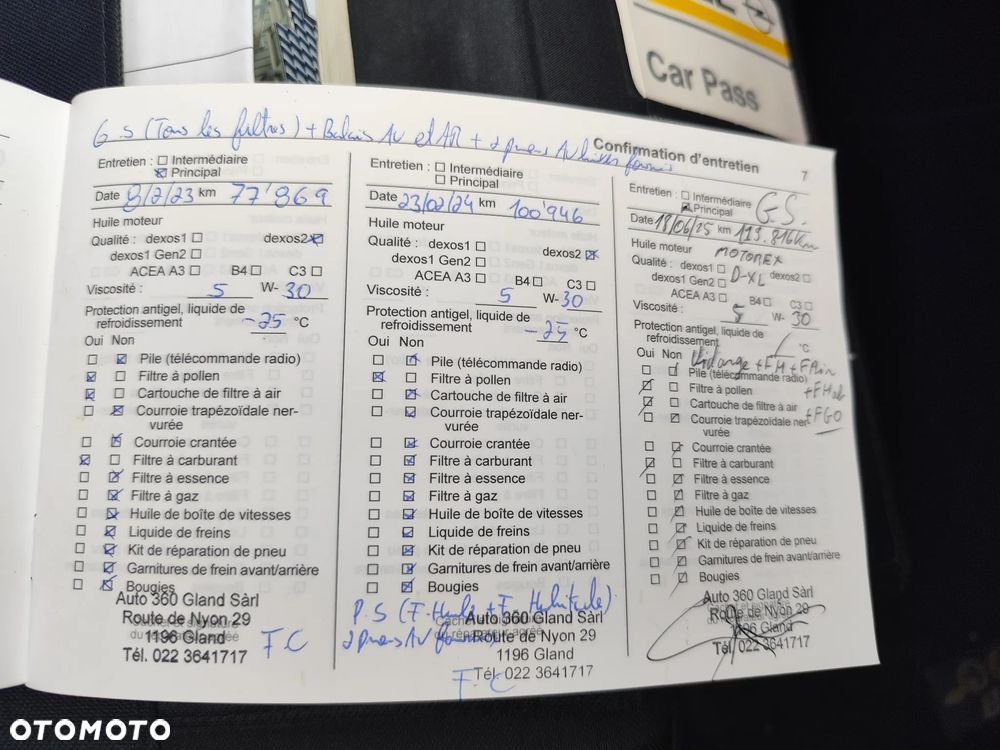 Car Pass
G.S (Tous les filtres) + Balais AV et AR + 2 pneus AV
Confirmation d'entretien
7
Entretien : Intermédiaire
Principal
Date 8/2/23 km 77'869
Huile moteur
Qualité : dexos1 dexos2
dexos1 Gen2
ACEA A3 B4 C3
Viscosité : 5 W- 30
Protection antigel, liquide de
refroidissement -25 °C
Oui Non
Pile (télécommande radio)
Filtre à pollen
Cartouche de filtre à air
Courroie trapézoïdale ner-
vurée
Courroie crantée
Filtre à carburant
Filtre à essence
Filtre à gaz
Huile de boîte de vitesses
Liquide de freins
Kit de réparation de pneu
Garnitures de frein avant/arrière
Bougies
Auto 360 Gland Sàrl
Route de Nyon 29
1196 Gland
Tél. 022 3641717
F.C
Entretien : Intermédiaire
Principal
Date 23/02/24 km 100'946
Huile moteur
Qualité : dexos1 dexos2
dexos1 Gen2
ACEA A3 B4 C3
Viscosité : 5 W- 30
Protection antigel, liquide de
refroidissement -25 °C
Oui Non
Pile (télécommande radio)
Filtre à pollen
Cartouche de filtre à air
Courroie trapézoïdale ner-
vurée
Courroie crantée
Filtre à carburant
Filtre à essence
Filtre à gaz
Huile de boîte de vitesses
Liquide de freins
Kit de réparation de pneu
Garnitures de frein avant/arrière
Bougies
P.S (F. Huile + F. Habitacle)
2 pneus AV
Auto 360 Gland Sàrl
Route de Nyon 29
1196 Gland
Tél. 022 3641717
F.C
Entretien : Intermédiaire
Principal G.S.
Date 18/06/25 km 119.816 km
Huile moteur MOTOREX
Qualité : dexos1 D-XL dexos2
dexos1 Gen2
ACEA A3 B4 C3
Viscosité : 5 W- 30
Protection antigel, liquide de
refroidissement / °C
Oui Non Vidange + FH + FAir
Pile (télécommande radio)
Filtre à pollen + FHab
Cartouche de filtre à air
Courroie trapézoïdale ner- + FGO
vurée
Courroie crantée
Filtre à carburant
Filtre à essence
Filtre à gaz
Huile de boîte de vitesses
Liquide de freins
Kit de réparation de pneu
Garnitures de frein avant/arrière
Bougies
Auto 360 Gland Sàrl
Route de Nyon 29
1196 Gland
Tél. 022 3641717
OTOMOTO